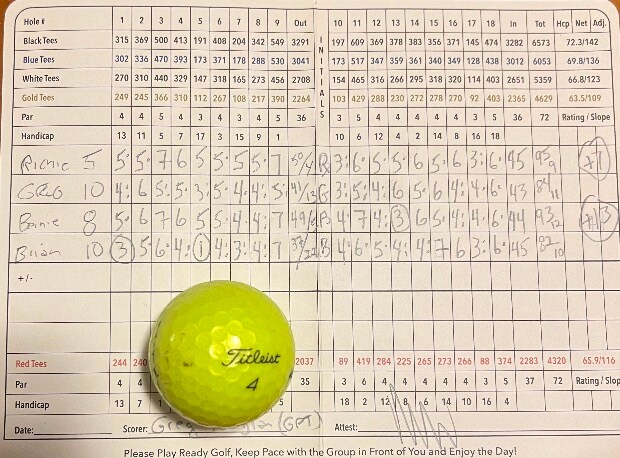 Hole # 1 2 3 4 5 6 7 8 9 Out INITIALS 10 11 12 13 14 15 16 17 18 In Tot Hcp Net Adj.
Black Tees 315 369 500 413 191 408 204 342 549 3291 197 609 369 378 383 356 371 145 474 3282 6573 72.3/142
Blue Tees 302 336 470 393 173 371 178 288 530 3041 173 517 347 359 361 340 349 128 438 3012 6053 69.8/136
White Tees 270 310 440 329 147 318 165 273 456 2708 154 465 316 266 295 318 320 114 403 2651 5359 66.8/123
Gold Tees 249 245 366 310 112 267 108 217 390 2264 103 429 288 230 272 278 270 92 403 2365 4629 63.5/109
Par 4 4 5 4 3 4 3 4 5 36 3 6 4 4 4 4 4 3 5 36 72 Rating / Slope
Handicap 13 11 5 7 17 3 15 9 1 10 6 12 4 2 14 8 16 18
Richie 5 5 5 7 6 5 5 5 5 7 3 6 5 5 6 5 6 3 6 45 95
Greg 10 4 6 5 5 3 5 4 4 5 41 G 3 5 4 6 5 6 4 4 6 43 84
8 5 6 7 6 5 5 4 4 7 49 B 4 7 4 3 6 5 4 4 6 44 93
Brian 10 3 5 6 4 1 4 3 4 7 B 4 6 5 4 4 7 6 3 6 45 82
+/-
Red Tees 244 240 2037 89 419 284 225 265 273 266 88 374 2283 4320 65.9/116
Par 4 4 35 3 6 4 4 4 4 4 3 5 37 72 Rating / Slop
Handicap 13 7 1 18 2 12 8 6 14 10 16 4
Date: Scorer: Greg (GPT) Attest:
Please Play Ready Golf, Keep Pace with the Group in Front of You and Enjoy the Day!
Titleist
4